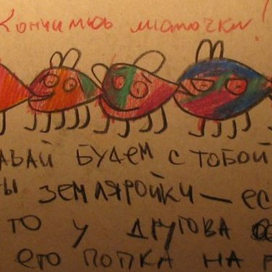 Кончились листочки!
АВАЙ БУДЕМ С ТОБОЙ
Ы ЗЕМЛЯРОЙКИ — ЕС
ТО У ДРУГОВА
ЕГО ПОПКА НА